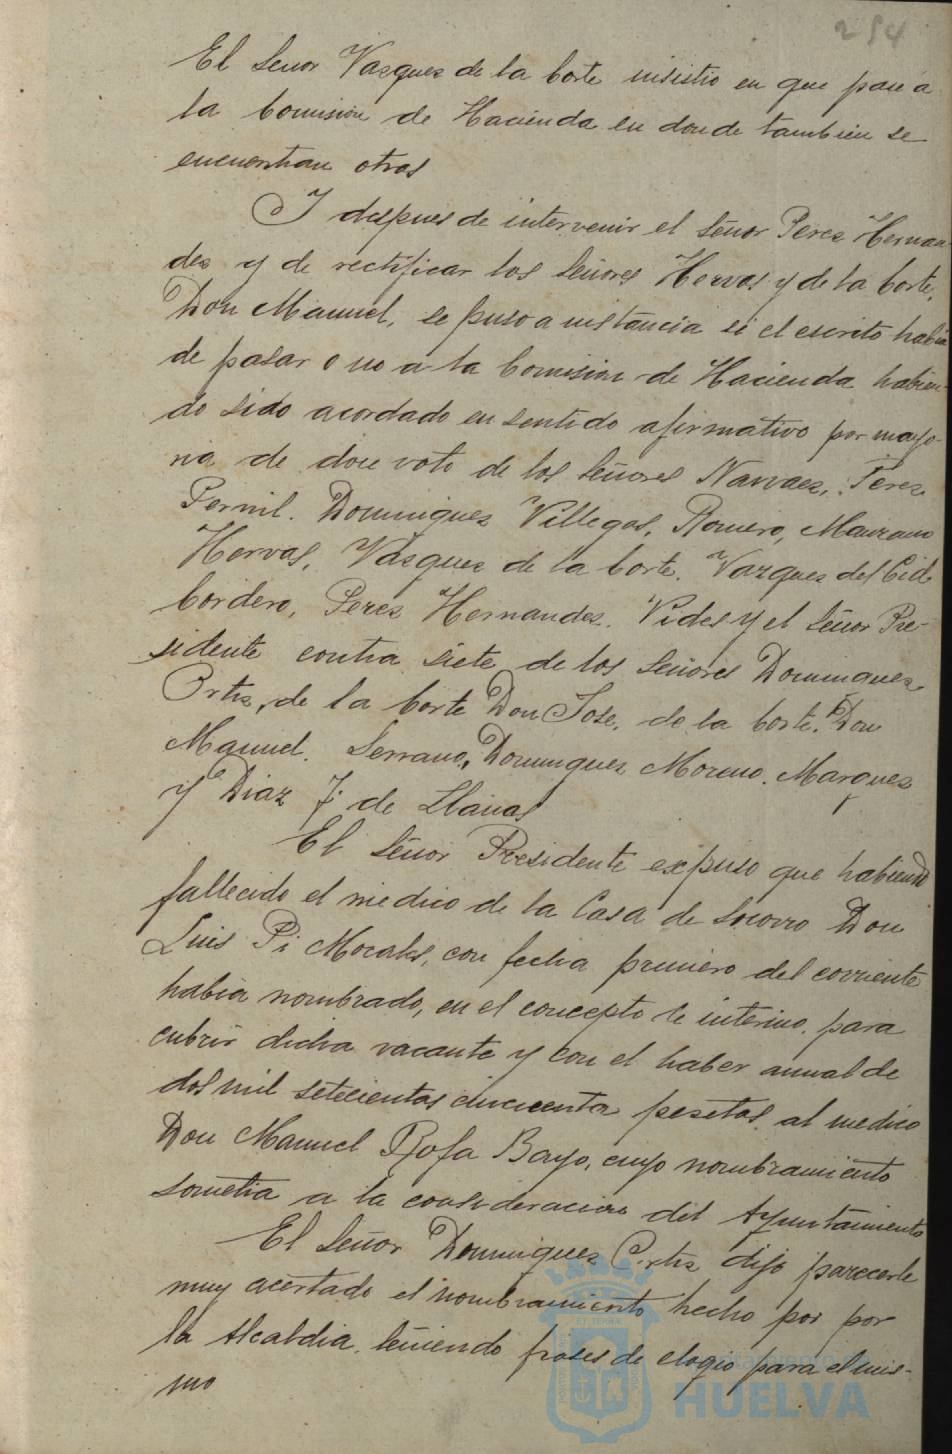 254
El Señor Vazquez de la Corte insistio en que pase a
la Comision de Hacienda en donde tambien se
encuentran otros
Y despues de intervenir el Señor Perez Hernan-
dez y de rectificar los Señores Hervas y de la Corte,
Don Manuel, se puso a instancia si el escrito habia
de pasar o no a la Comision de Hacienda habien-
do sido acordado en sentido afirmativo por mayo-
ria de doce voto de los Señores Narvaez, Perez
Pernil. Dominguez Villegas, Romero, Manzano
Hervas, Vasquez de la Corte. Vazquez del Cid
Cordero, Perez Hernandez. Vides y el Señor Pre-
sidente contra siete de los Señores Dominguez
Ortiz, de la Corte Don Jose, de la Corte, Don
Manuel. Serrano, Dominguez Moreno. Marquez
y Diaz F. de Llanos
El Señor Presidente expuso que habiendo
fallecido el medico de la Casa de Socorro Don
Luis Pi Morales, con fecha primero del corriente
habia nombrado, en el concepto de interino, para
cubrir dicha vacante y con el haber anual de
dos mil setecientas cincuenta pesetas, al medico
Don Manuel Rofa Bayo, cuyo nombramiento
sometia a la consideracion del Ayuntamiento
El Señor Dominguez Ortiz dijo parecerle
muy acertado el nombramiento hecho por por
la Alcaldia, teniendo frases de elogio para el mis-
mo
HUELVA